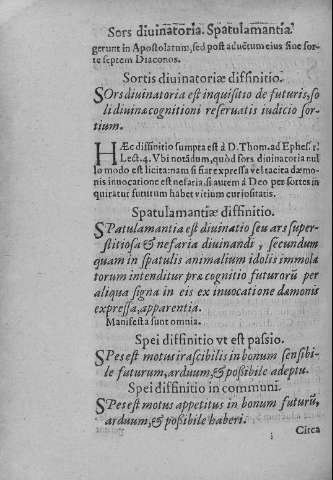 Sors diuinatoria. Spatulamantia.
gerunt in Apostolatum, sed post aduētum eius sine sor-
te septem Diaconos.
Sortis diuinatoriæ diffinitio.
SOrs diuinatoria est inquisitio de futuris, so
li diuinæ cognitioni reseruatis iudicio sor-
tium.
HÆc diffinitio sumpta est á D. Thom. ad Ephes. 1.
Lect. 4. Vbi notādum, quòd sors diuinatoria nul
lo modo est licita: nam si fiat expressa vel tacita dæmo-
nis inuocatione est nefaria, si autem á Deo per sortes in
quiratur futurum habet vitium curiositatis.
Spatulamantiæ diffinitio.
SPatulamantia est diuinatio seu ars super-
stitiosa & nefaria diuinandi, secundum
quam in spatulis animalium idolis immola
torum intenditur præcognitio futurorū per
aliqua signa in eis ex inuocatione dæmonis
expressa, apparentia.
Manifesta sunt omnia.
Spei diffinitio vt est passio.
SPes est motus irascibilis in bonum sensibi-
le futurum, arduum, & poßibile adeptu.
Spei diffinitio in communi.
SPes est motus appetitus in bonum futurū,
arduum, & poßibile haberi.
Circa